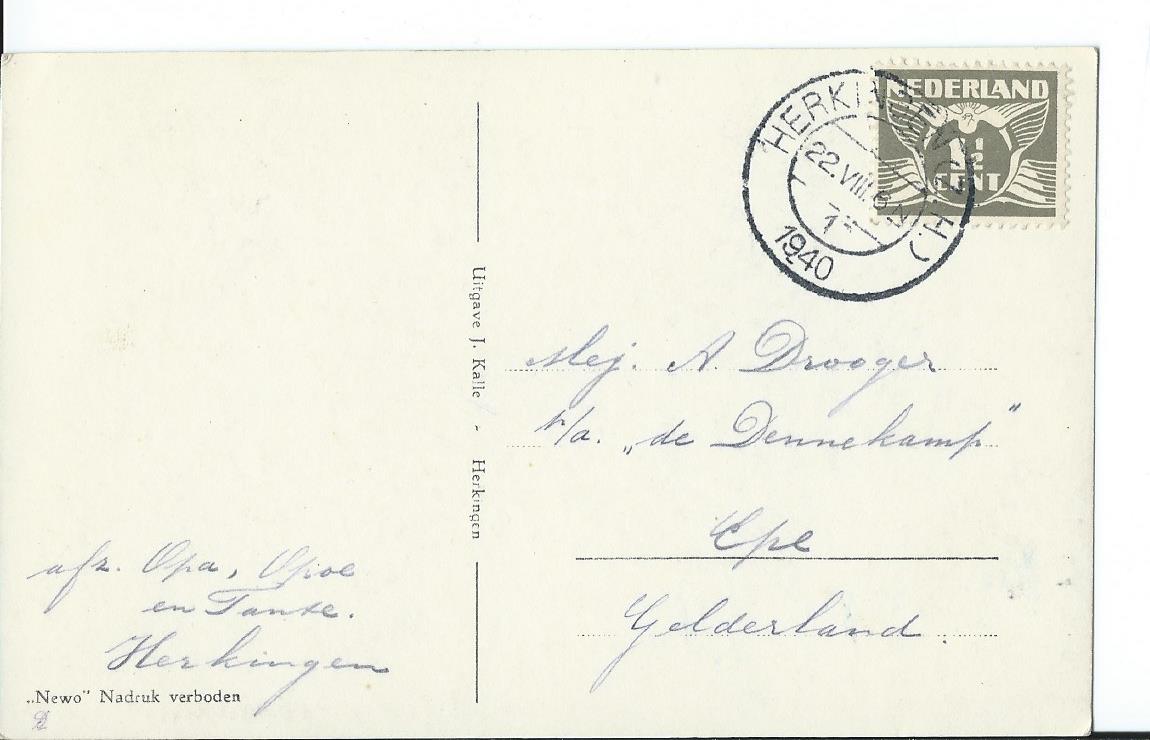 NEDERLAND
1½
CENT
HERKINGEN (Z.H.)
22.VIII.
1940
Uitgave J. Kalle - Herkingen
Mej. A. Drooger
p/a. „de Dennekamp"
Epe
Gelderland.
afz. Opa, Opoe
en Tante.
Herkingen
„Newo" Nadruk verboden